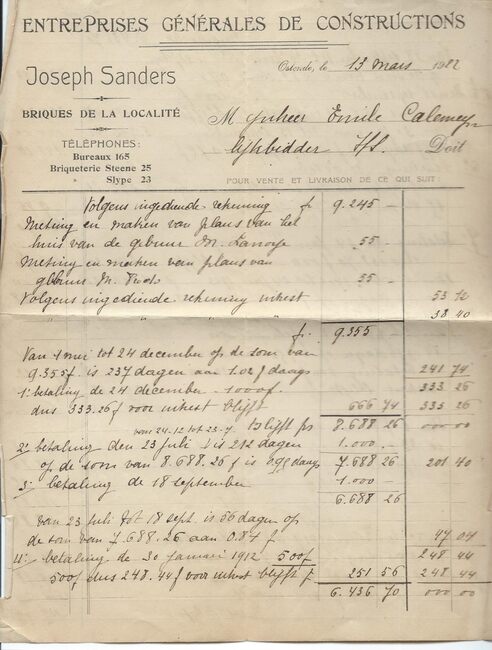 ENTREPRISES GÉNÉRALES DE CONSTRUCTIONS
Joseph Sanders
BRIQUES DE LA LOCALITÉ
TÉLÉPHONES:
Bureaux 165
Briqueterie Steene 25
" Slype 23
Ostende, le 13 mars 19
Emile Calemeyn
Doit
POUR VENTE ET LIVRAISON DE CE QUI SUIT:
Volgens ingediende rekening fr 9.245 -
Meting en maken van plans van het
huis van de gebuur M. 55 -
Meting en maken van plans van
gebuur M. 55 -
Volgens ingediende rekening intrest 53 12
" " " " 38 40
fr. 9.355
Van 1 mei tot 24 december op de som van
9.355f is 237 dagen aan 1.02 f daags 241 74
1e betaling de 24 december 1000f 333 26
dus 333.26f voor intrest blijft 666 74 333 26
van 24-12 tot 23-7 Blijft frs 8.688 26 000 00
2e betaling den 23 juli is 212 dagen 1.000 -
op de som van 8.688.26 f is 0.95 daags 7.688 26 201 40
3e betaling de 18 september 1.000 -
6.688 26
van 23 juli tot 18 sept. is 56 dagen op
de som van 7.688.26 aan 0.84 f 47 04
4e betaling de 30 januari 1912 500f 248 44
500f dus 248.44f voor intrest blijft f 251 56 248 44
6.436 70 000 00